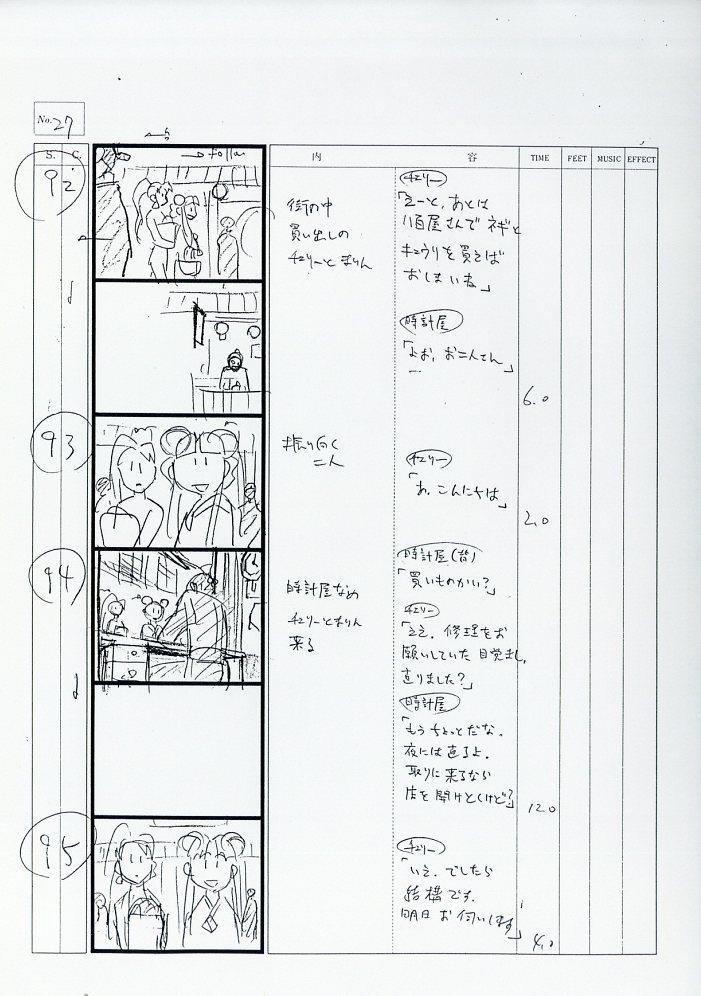 No. 27
S. C. 内 容 TIME FEET MUSIC EFFECT
92
→ Follow
街の中
買い出しの
チェリーとまりん
チェリー
「えーと、あとは
八百屋さんで ネギと
キュウリを買えば
おしまいね」
時計屋
「よお、お二人さん」
6.0
93
振り向く
二人
チェリー
「あ、こんにちは」
2.0
94
時計屋なめ
チェリーとまりん
来る
時計屋(背)
「買いものかい?」
チェリー
「ええ、修理をお
願いしていた目覚まし、
直りました?」
時計屋
「もうちょっとだな。
夜には直るよ。
取りに来るなら
店を開けとくけど?」
12.0
95
チェリー
「いえ、でしたら
結構です。
明日お伺いします」
4.0